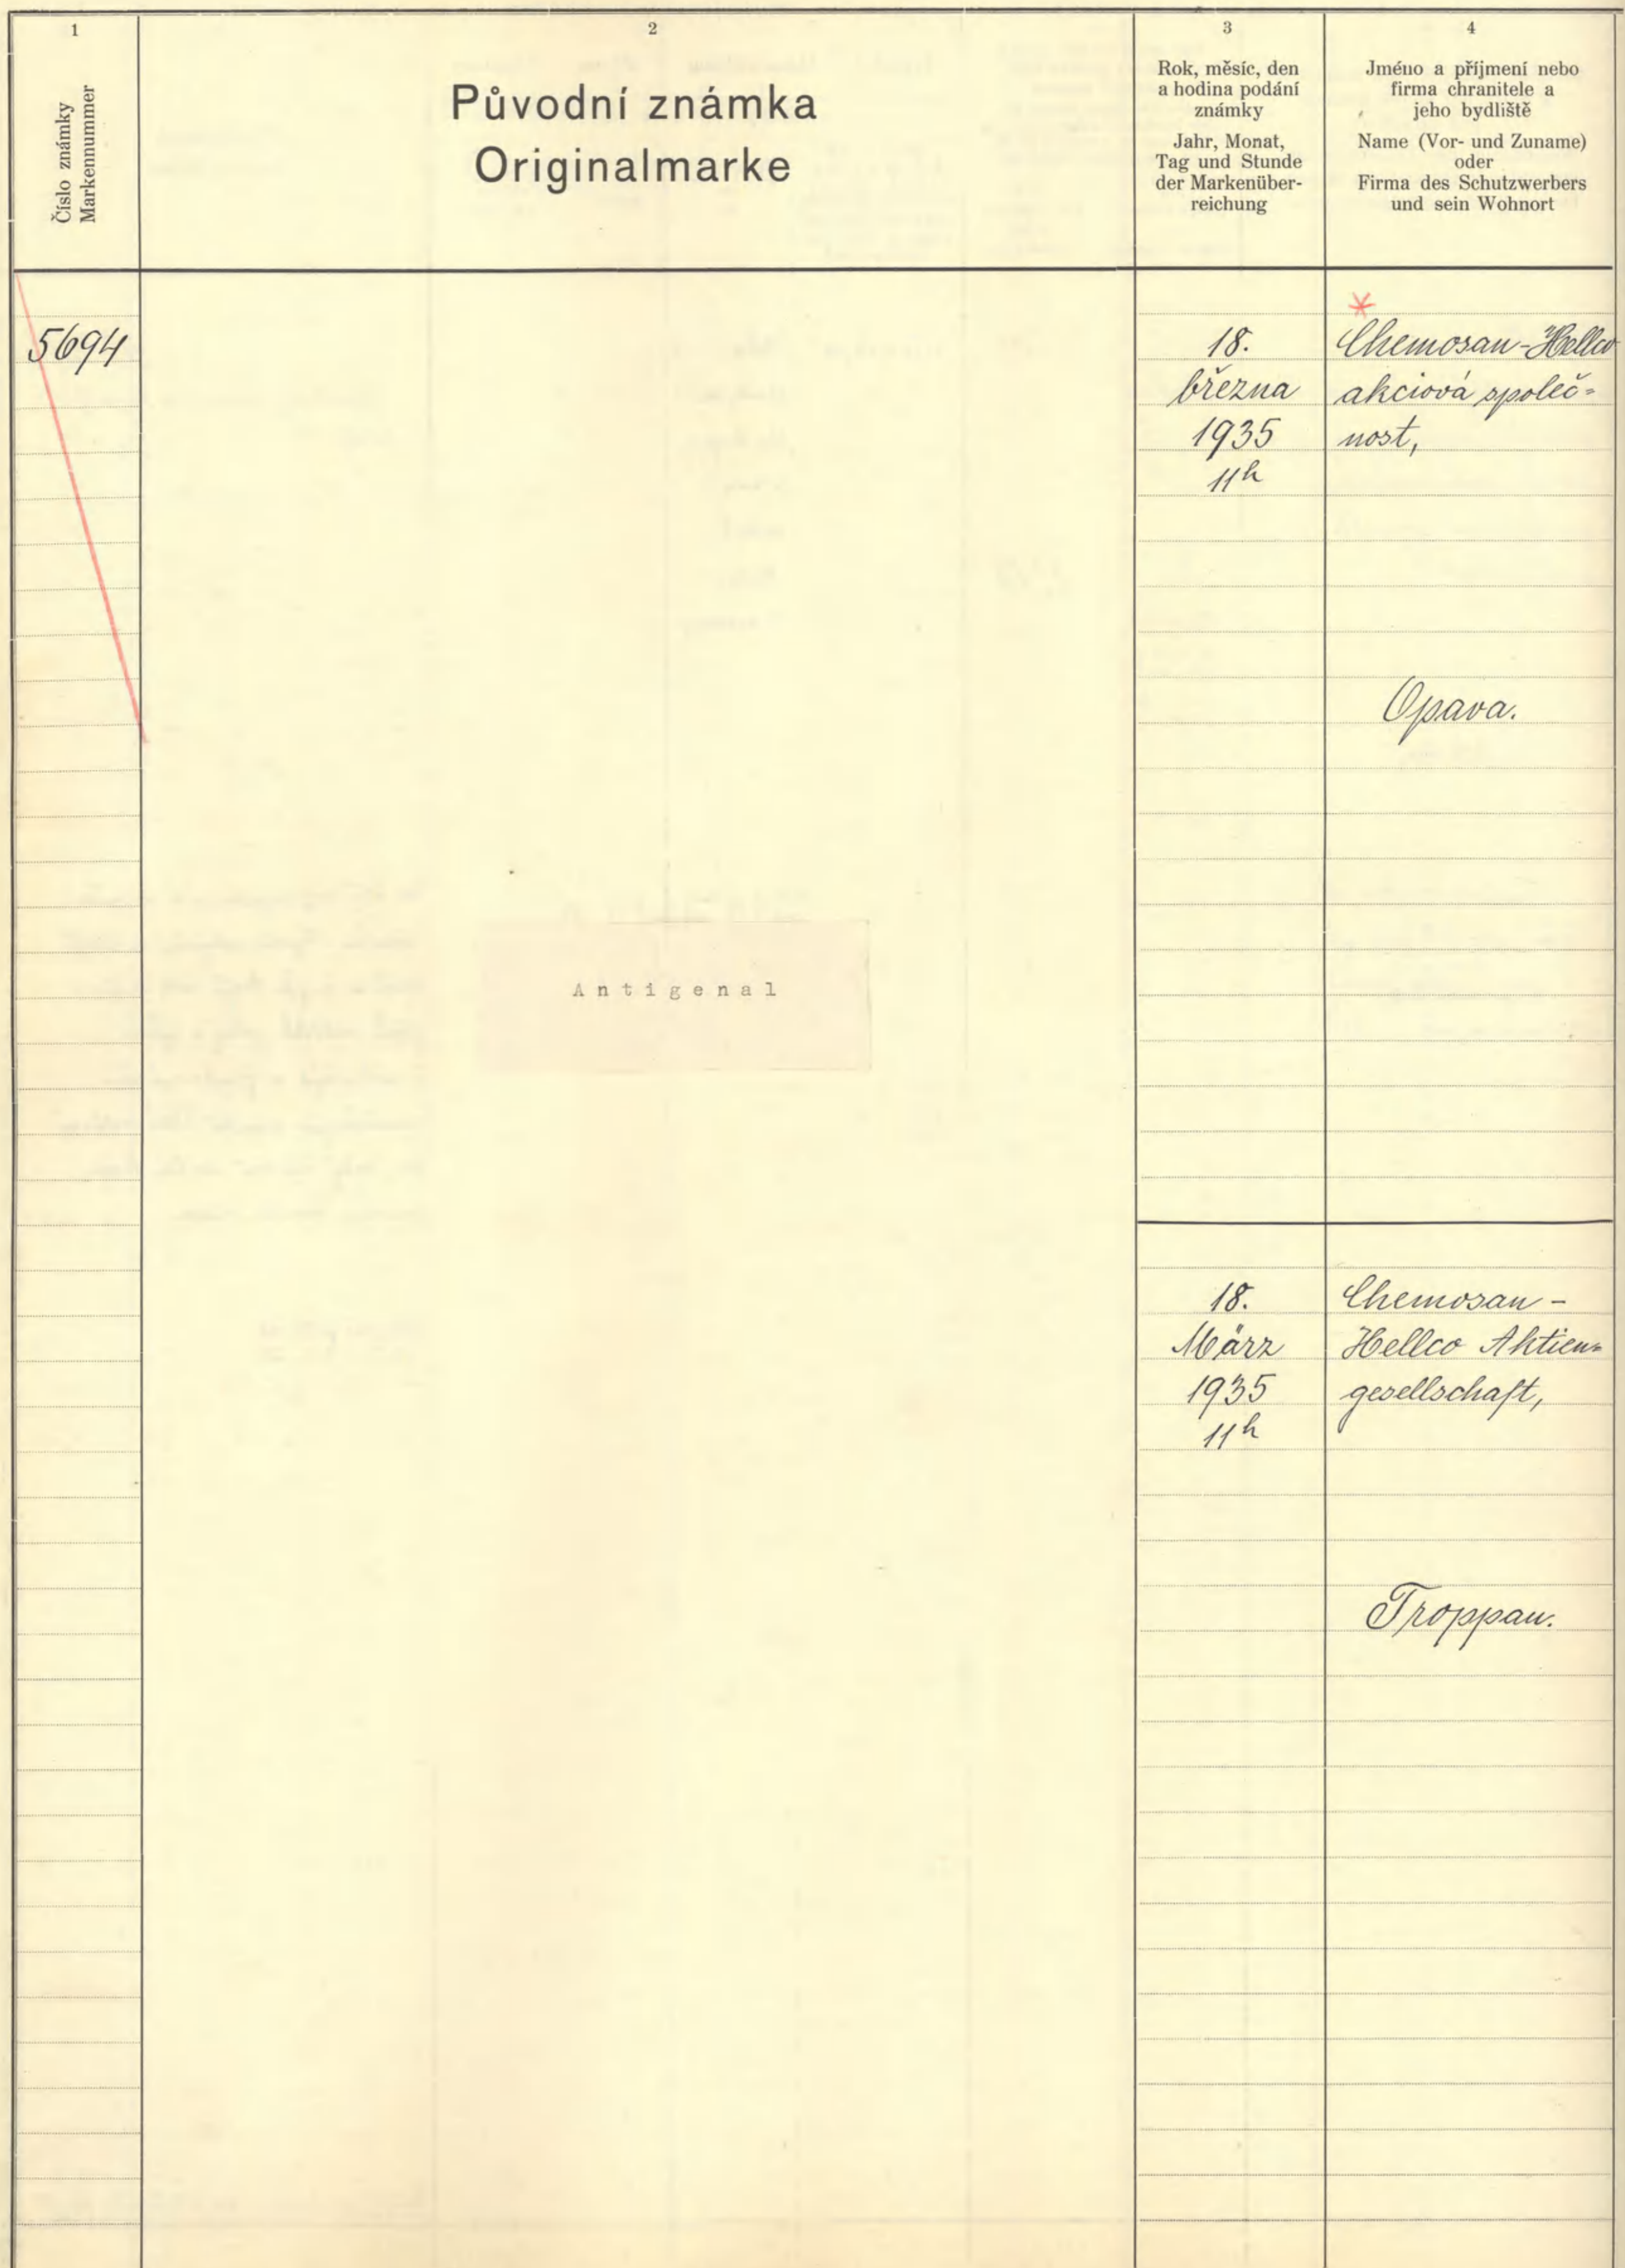 1
Číslo známky
Markennummer
2
Původní známka
Originalmarke
3
Rok, měsíc, den
a hodina podání
známky
Jahr, Monat,
Tag und Stunde
der Markenüber-
reichung
4
Jméno a příjmení nebo
firma chranitele a
jeho bydliště
Name (Vor- und Zuname)
oder
Firma des Schutzwerbers
und sein Wohnort
5694
Antigenal
18.
března
1935
11h
*
Chemosan-Hellco
akciová společ-
nost,
Opava.
18.
März
1935
11h
Chemosan-
Hellco Aktien-
gesellschaft,
Troppau.